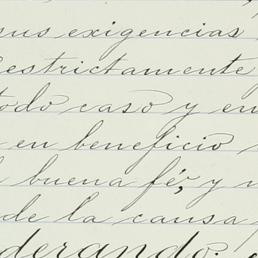 sus exigencias
estrictamente
todo caso y en
en beneficio
buena fé, y
de la causa
derando: